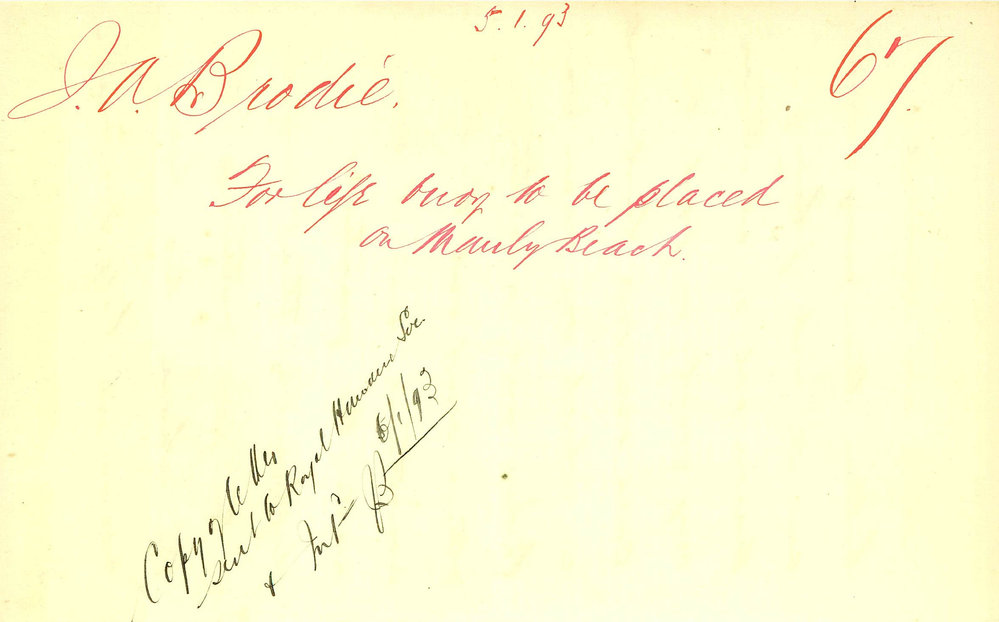 5.1.93
J. A. Brodie.
67
For life buoy to be placed
on Manly Beach.
Copy of letter
sent to Royal Humane Soc.
& Int^d JB 6/1/93